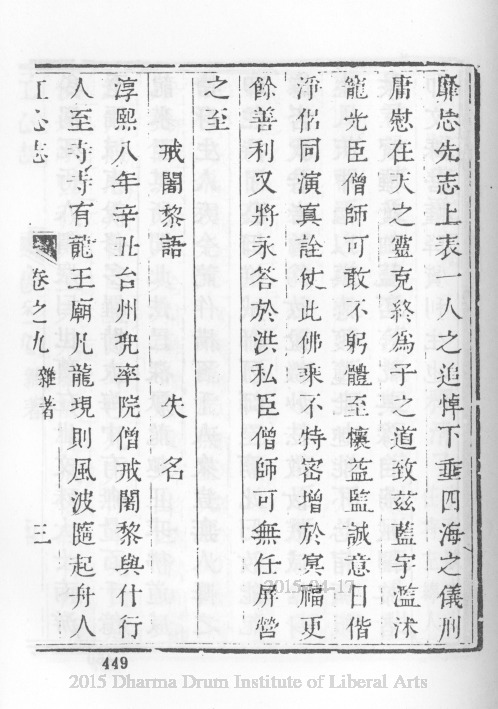 靡忘先志上表一人之追悼下垂四海之儀刑
庸慰在天之靈克終為子之道致茲藍宇濫沐
寵光臣僧師可敢不躬體至懷益監誠意日偕
淨侶同演真詮仗此佛乘不特密增於冥福更
餘善利又將永答於洪私臣僧師可無任屏營
之至
戒闍黎語 失名
淳熙八年辛丑台州兜率院僧戒闍黎與什行
人至寺寺有龍王廟凡龍現則風波隨起舟人
江心志 卷之九 雜著 三
449
2015-04-17
2015 Dharma Drum Institute of Liberal Arts